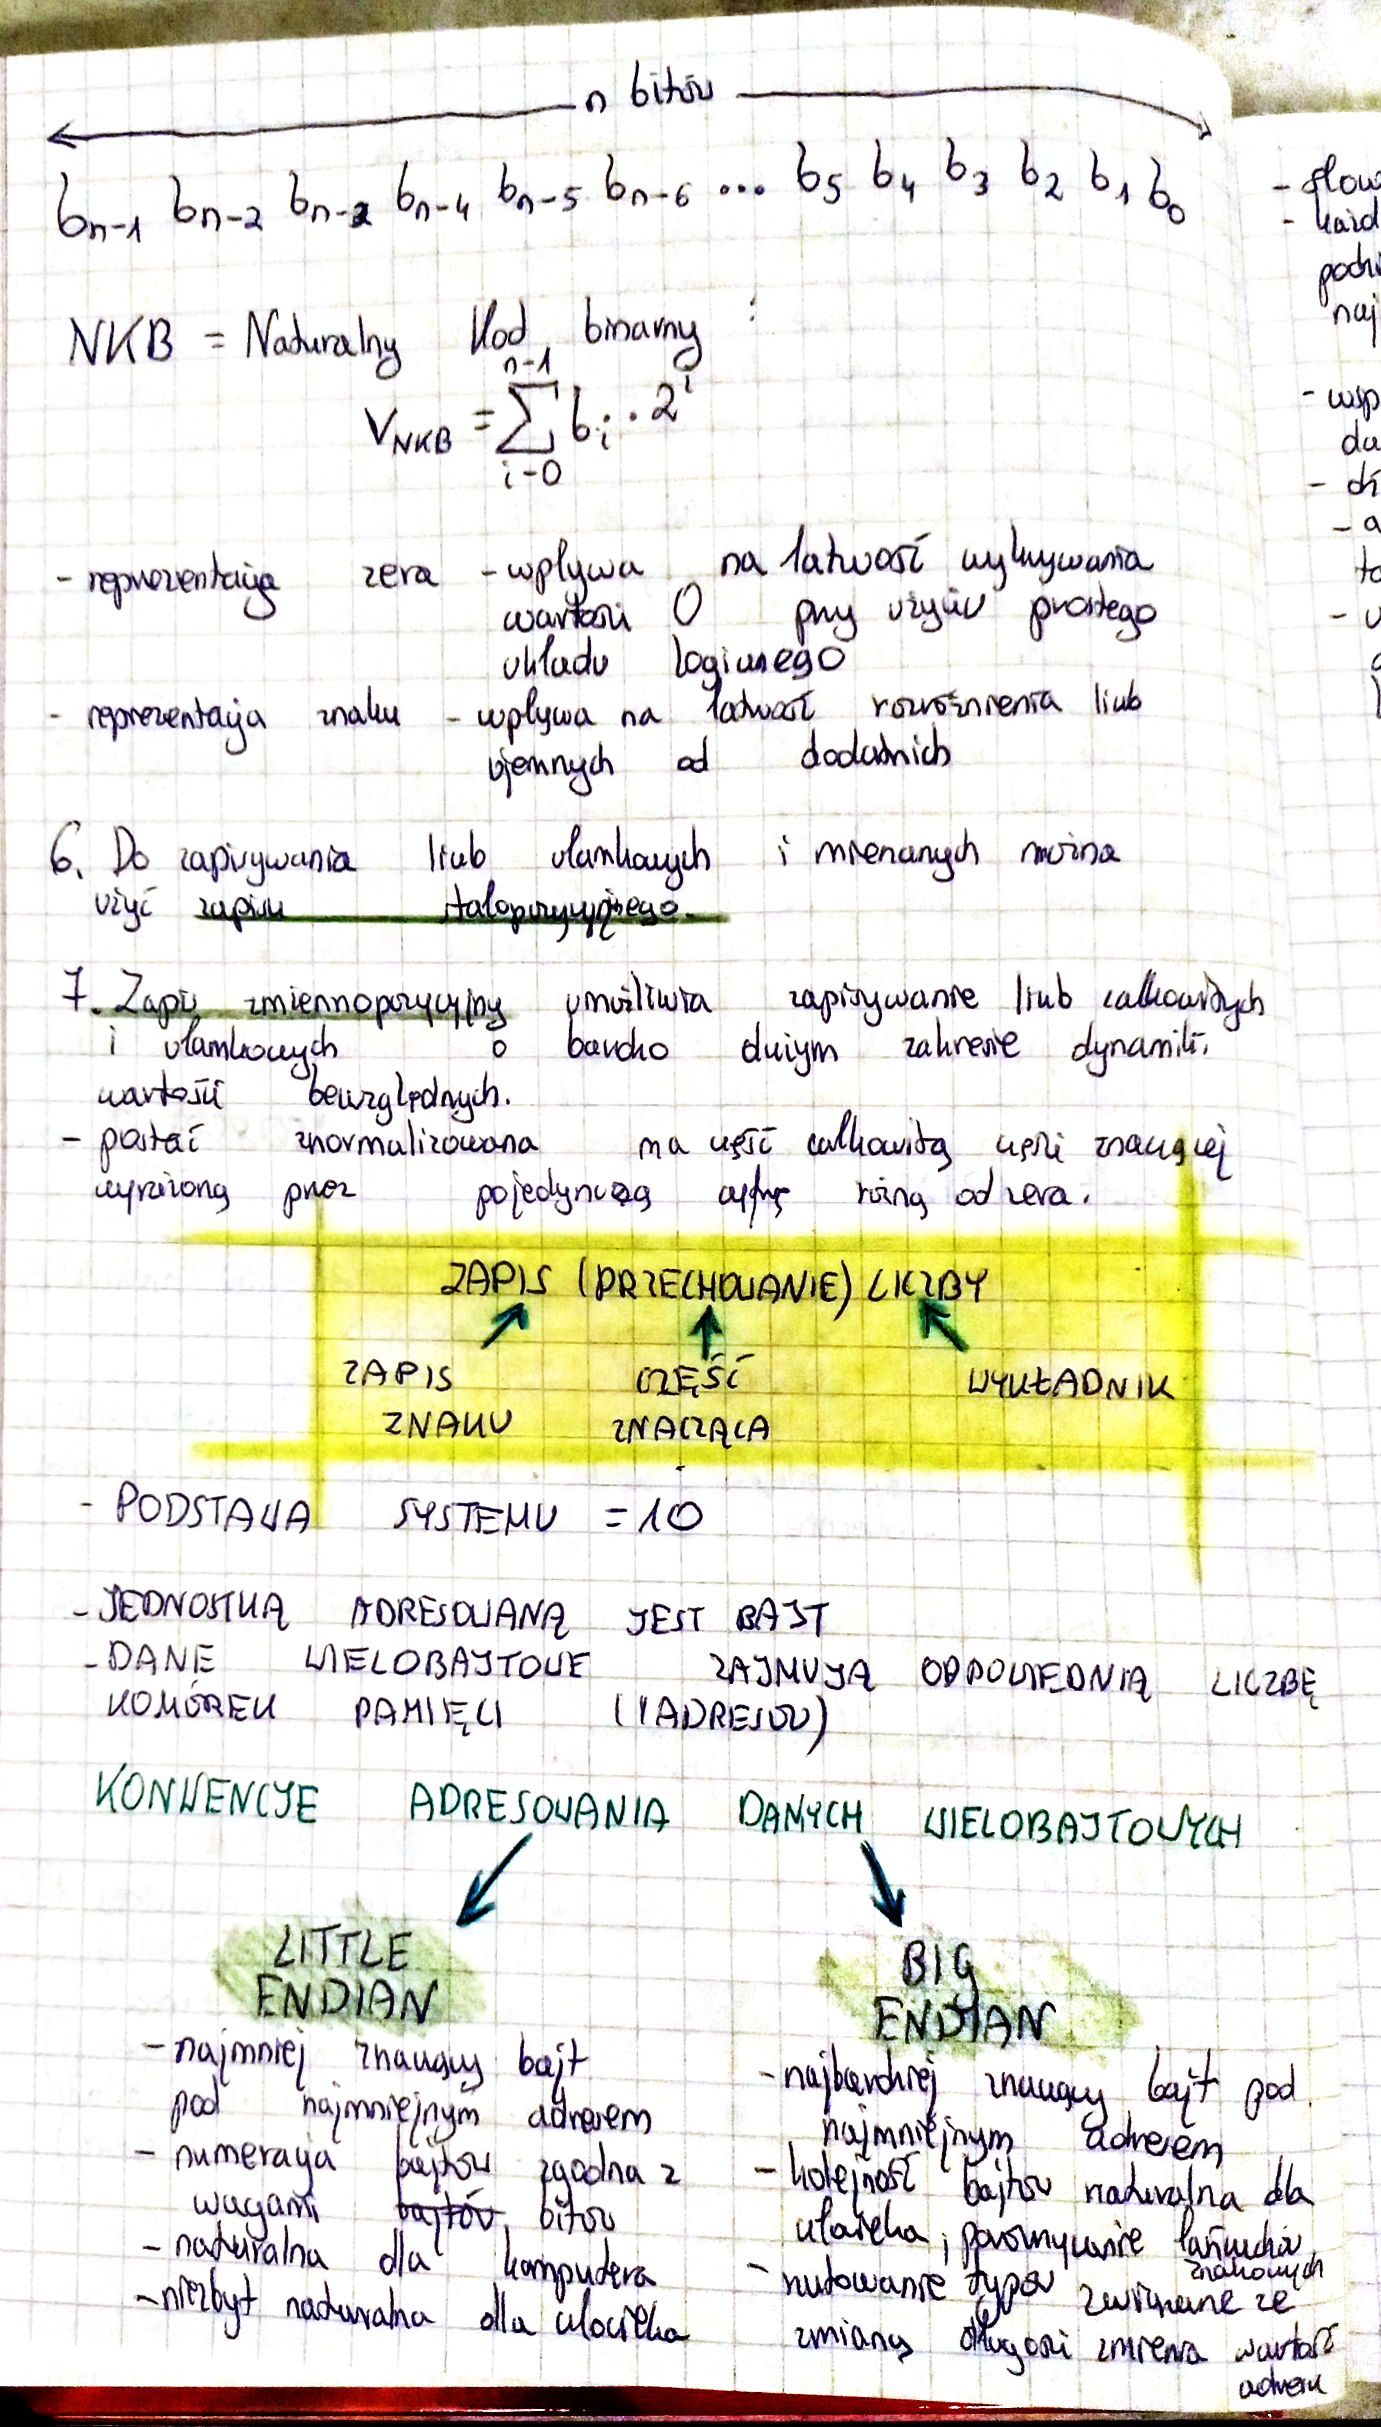 n bitów
bn-1 bn-2 bn-3 bn-4 bn-5 bn-6 ... b5 b4 b3 b2 b1 b0
NKB = Naturalny Kod binarny :
n-1
VNKB = Σ bi · 2^i
i-0
- reprezentacja zera - wpływa na łatwość wykrywania
wartości 0 przy użyciu prostego
układu logicznego
- reprezentacja znaku - wpływa na łatwość rozróżnienia liczb
ujemnych od dodatnich
6. Do zapisywania liczb ułamkowych i mieszanych można
użyć zapisu stałopozycyjnego.
7. Zapis zmiennopozycyjny umożliwia zapisywanie liczb całkowitych
i ułamkowych o bardzo dużym zakresie dynamiki.
wartości bezwzględnych.
- postać znormalizowana ma część całkowitą części znaczącej
wyrażoną przez pojedynczą cyfrę różną od zera.
ZAPIS (PRZECHOWANIE) LICZBY
ZAPIS CZĘŚĆ WYKŁADNIK
ZNAKU ZNACZĄCA
- PODSTAWA SYSTEMU = 10
- JEDNOSTKĄ ADRESOWANĄ JEST BAJT
- DANE WIELOBAJTOWE ZAJMUJĄ ODPOWIEDNIĄ LICZBĘ
KOMÓREK PAMIĘCI (I ADRESÓW)
KONWENCJE ADRESOWANIA DANYCH WIELOBAJTOWYCH
LITTLE
ENDIAN
- najmniej znaczący bajt
pod najmniejszym adresem
- numeracja bajtów zgodna z
wagami bajtów bitów
- naturalna dla komputera
- niezbyt naturalna dla człowieka
BIG
ENDIAN
- najbardziej znaczący bajt pod
najmniejszym adresem
- kolejność bajtów naturalna dla
człowieka, porównywanie łańcuchów
znakowych
- rzutowanie typów związane ze
zmianą długości zmienia wartość
adresu
- słow
- każd
naj
- wsp
- a